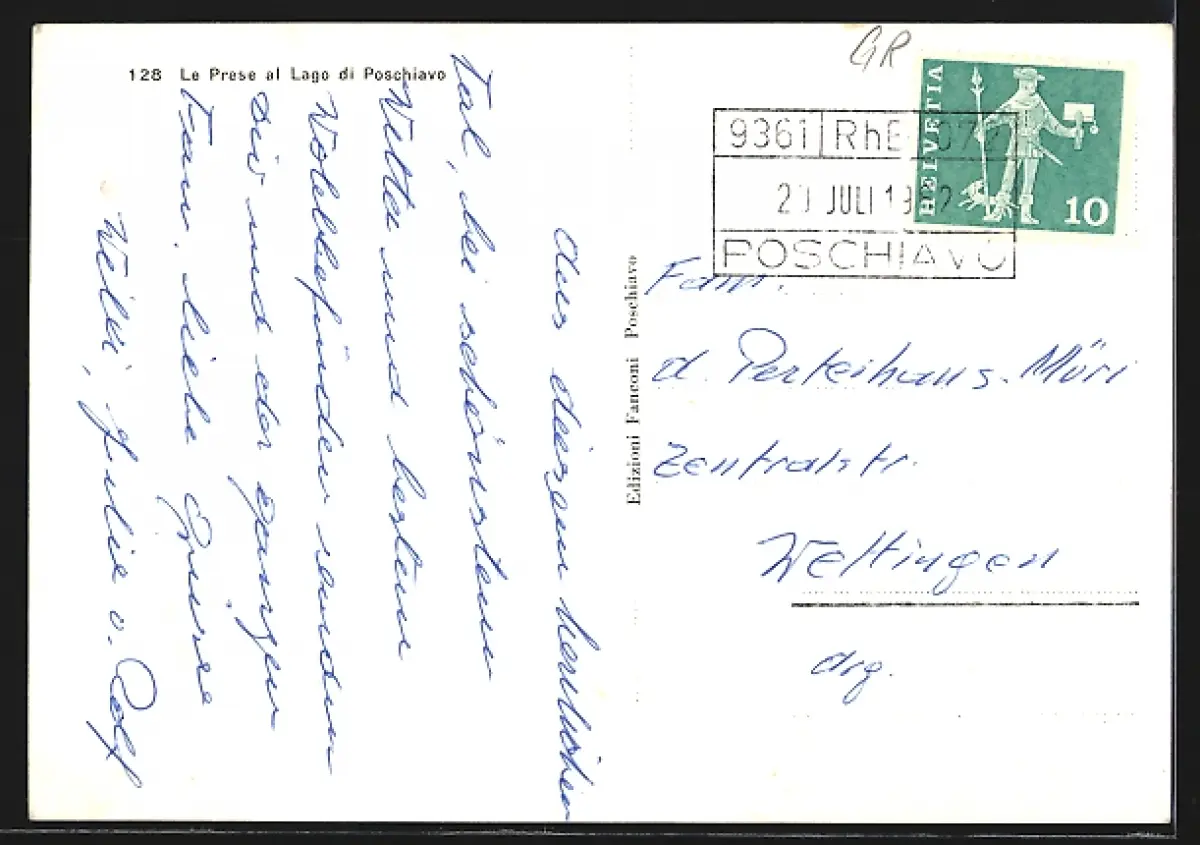 128 Le Prese al Lago di Poschiavo
Aus diesem herrlichen
Tal, bei schönstem
Wetter und bestem
Wohlbefinden senden
Dir und der ganzen
Fam. liebe Grüsse
Willi, Julia u. Rolf
Edizioni Fanconi Poschiavo
GR
HELVETIA
10
9361 RhB
JULI
POSCHIAVO
Fam.
d. Perteihaus. Müri
Zentralstr.
Wettingen
Arg.